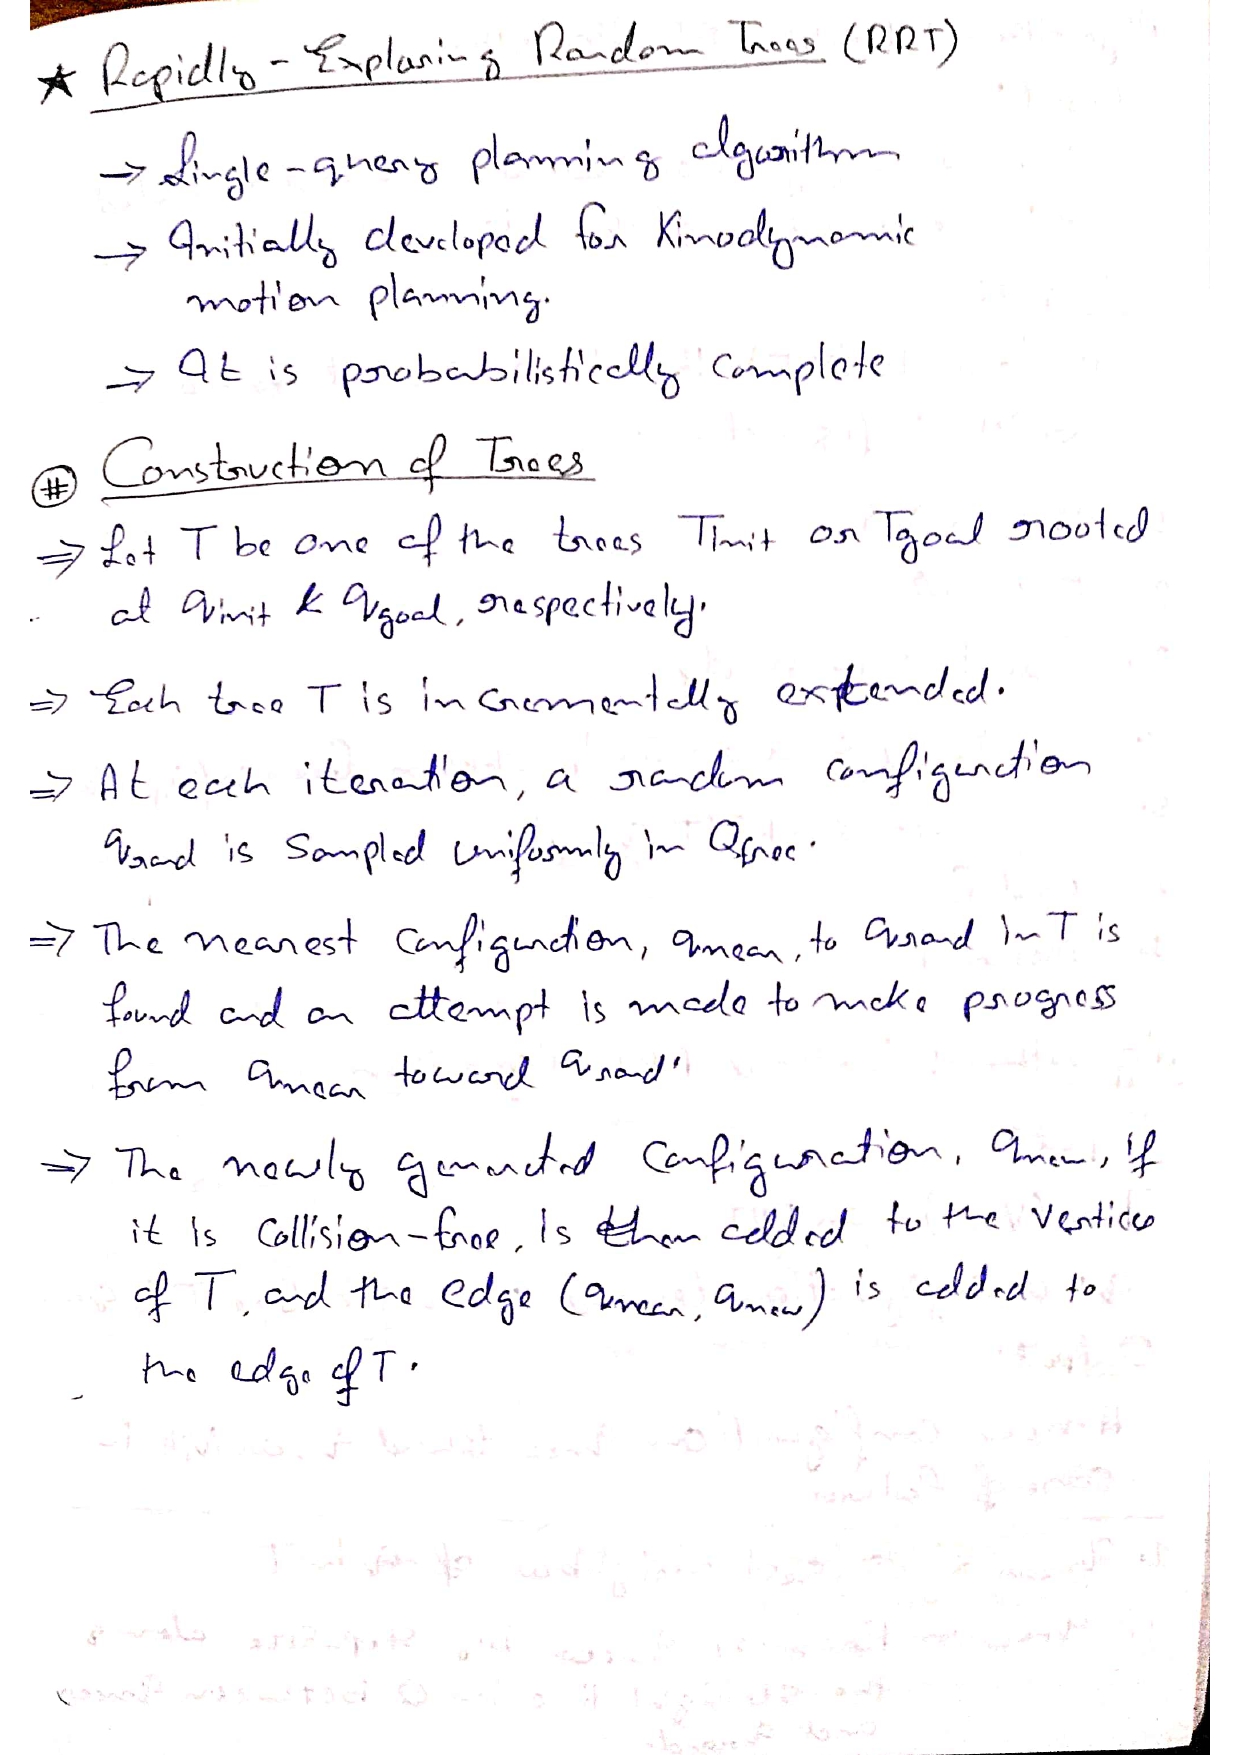 ★ Rapidly-Exploring Random Trees (RRT)
→ Single-query planning algorithm
→ Initially developed for Kinodynamic
motion planning.
→ It is probabilistically complete
# Construction of Trees
⇒ Let T be one of the trees Tinit or Tgoal rooted
at qinit & qgoal, respectively.
⇒ Each tree T is incrementally extended.
⇒ At each iteration, a random configuration
qrand is Sampled uniformly in Qfree.
⇒ The nearest configuration, qnear, to qrand in T is
found and an attempt is made to make progress
from qnear toward qrand.
⇒ The newly generated configuration, qnew, if
it is Collision-free, is then added to the vertices
of T, and the edge (qnear, qnew) is added to
the edge of T.